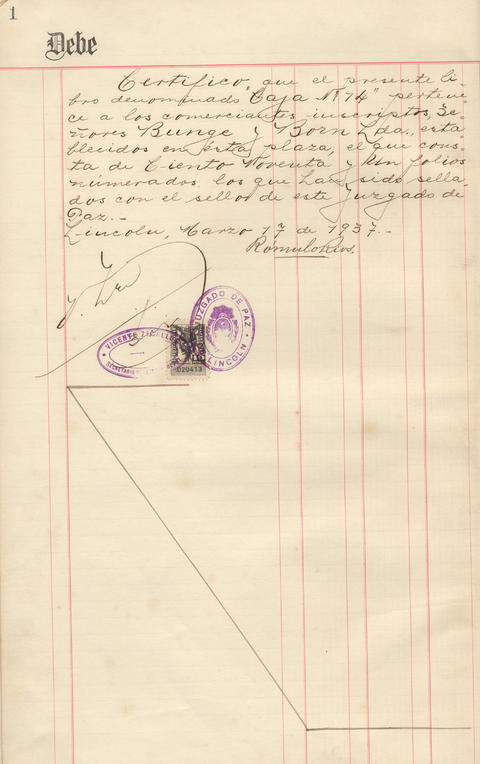 1
Debe
Certifico, que el presente li-
bro denominado "Caja Nº 14" pertene-
ce a los comerciantes inscriptos, Se-
ñores Bunge y Born Lda, esta
blecidos en ésta plaza, el que cons-
ta de Ciento Noventa y Un folios
númerados, los que han sido sella-
dos con el sello de este Juzgado de
Paz.-
Lincoln, Marzo 17 de 1937.-
Rómulo Ríos.
JUZGADO DE PAZ
LINCOLN
VICENTE
SECRETARIO
020413